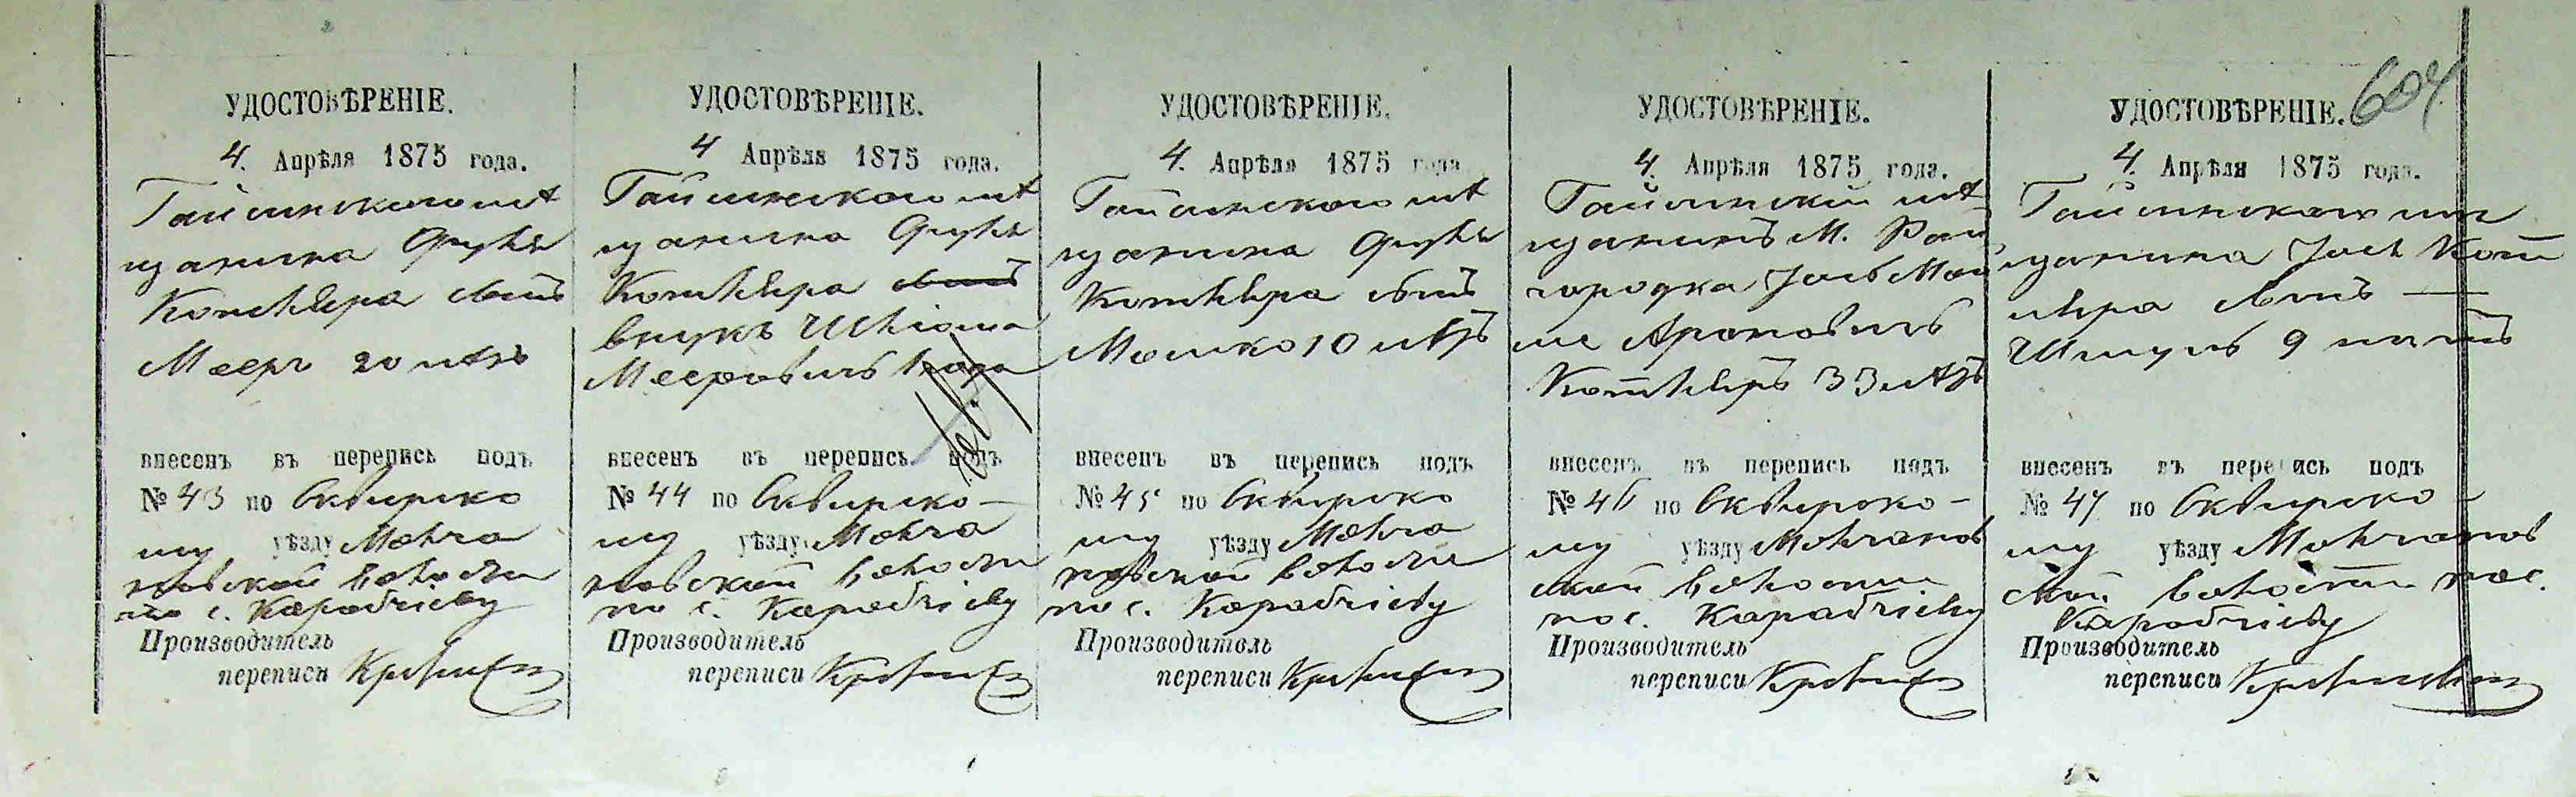 604
УДОСТОВѢРЕНІЕ.
4. Апрѣля 1875 года.
Гайсинскаго мѣ
щанина
Котляра сынъ
Мееръ 20 лѣтъ
внесенъ въ перепись подъ
№ 43 по Сквирско
му уѣзду Молча
новской волости
по с. Карабчіеву
Производитель
переписи
УДОСТОВѢРЕНІЕ.
4 Апрѣля 1875 года.
Гайсинскаго мѣ
щанина
Котляра сынъ
внукъ Шліома
Мееровичъ 1 года
внесенъ въ перепись подъ
№ 44 по Сквирско-
му уѣзду Молча
новской волости
по с. Карабчіеву
Производитель
переписи
УДОСТОВѢРЕНІЕ.
4. Апрѣля 1875 года
Гайсинскаго мѣ
щанина
Котляра сынъ
Мошко 10 лѣтъ
внесенъ въ перепись подъ
№ 45 по Сквирско
му уѣзду Молча
новской волости
по с. Карабчіеву
Производитель
переписи
УДОСТОВѢРЕНІЕ.
4. Апрѣля 1875 года.
Гайсинскій мѣ
щанинъ М. Рай
городка Іось Мой
ше Ароновичъ
Котляръ 33 лѣтъ
внесенъ въ перепись подъ
№ 46 по Сквирско-
му уѣзду Молчанов
ской волости
по с. Карабчіеву
Производитель
переписи
УДОСТОВѢРЕНІЕ.
4. Апрѣля 1875 года.
Гайсинскаго мѣ
щанина Іося Кот
ляра сынъ —
Шмуль 9 лѣтъ
внесенъ въ перепись подъ
№ 47 по Сквирско-
му уѣзду Молчанов
ской волости по с.
Карабчіеву
Производитель
переписи